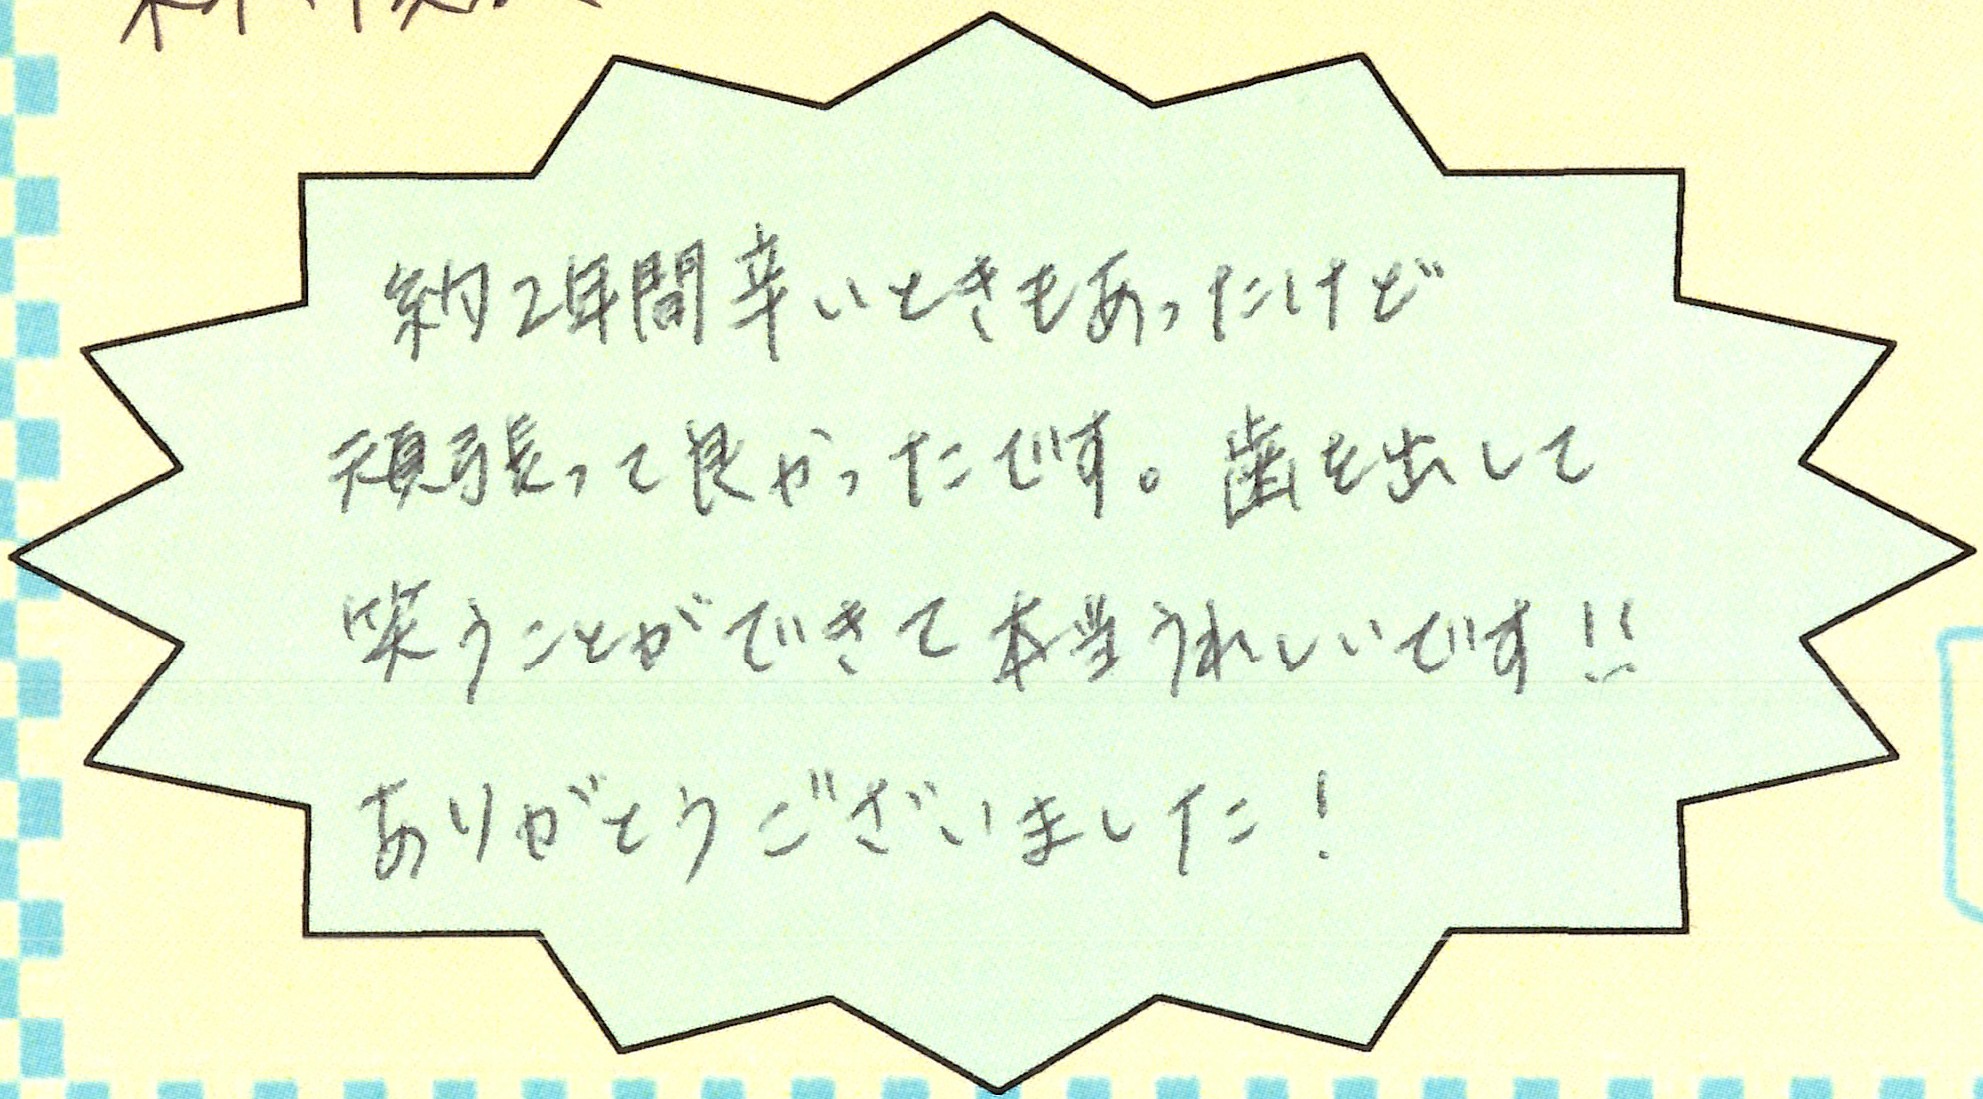 約2年間辛いときもあったけど
頑張って良かったです。歯を出して
笑うことができて本当うれしいです!!
ありがとうございました!